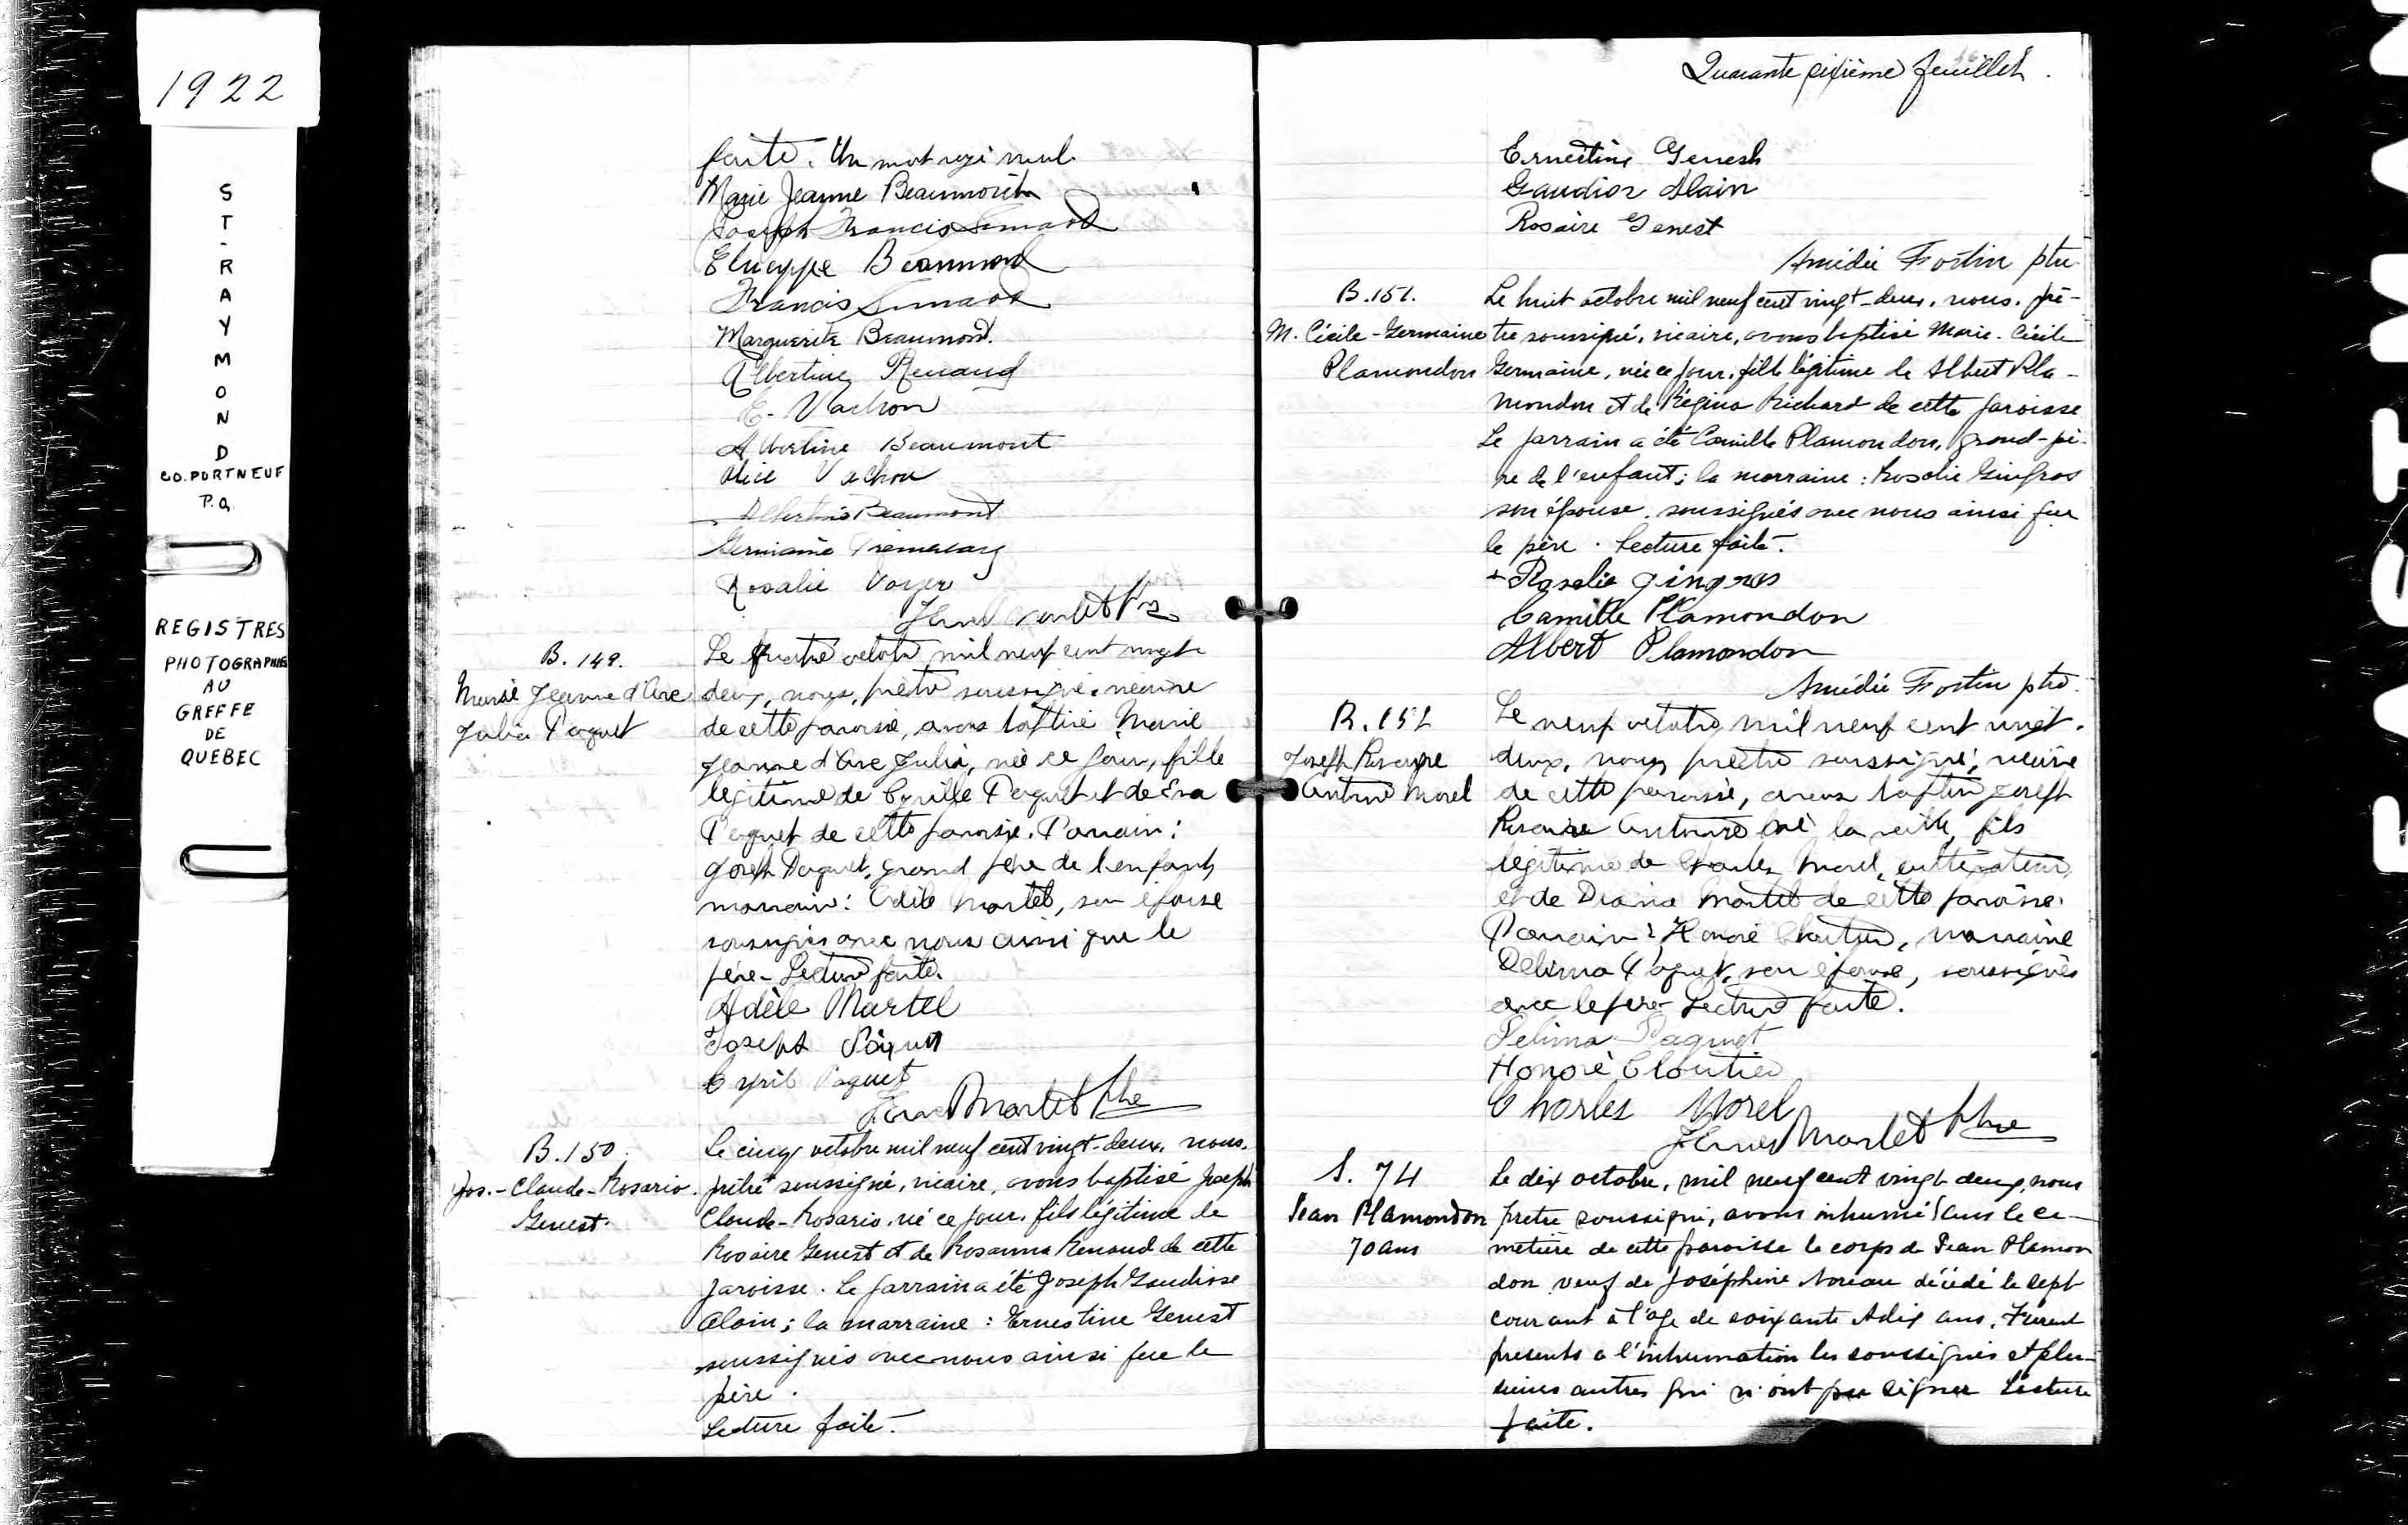 1922
S
T
-
R
A
Y
M
O
N
D
CO. PORTNEUF
P.Q.
REGISTRES
PHOTOGRAPHIE
AU
GREFFE
DE
QUEBEC
faite. Un mot rayé nul.
Marie Jeanne Beaumont
Joseph Francis Simard
Beaumond
Francis Simard
Marguerite Beaumont.
Albertine Renaud
E. Vachon
Albertine Beaumont
Alice Vachon
Albertine Beaumont
Germaine
Rosalie Voyer
B. 149.
Marie Jeanne d'Arc
Julia Paquet
Le quatre octobre mil neuf cent vingt
deux, nous, prêtre soussigné, vicaire
de cette paroisse, avons baptisé Marie
Jeanne d'Arc Julia, née ce jour, fille
légitime de Cyrille Paquet et de Eva
Paquet de cette paroisse. Parrain:
Joseph Paquet, grand père de l'enfant,
marraine: Adèle Martel, son épouse
soussignés avec nous ainsi que le
père. Lecture faite.
Adèle Martel
Joseph Paquet
Cyril Paquet
Martel ptre
B. 150.
Jos.-Claude-Rosario.
Genest.
Le cinq octobre mil neuf cent vingt-deux, nous,
prêtre soussigné, vicaire, avons baptisé Joseph
Claude-Rosario, né ce jour, fils légitime de
Rosaire Genest et de Rosanna Renaud de cette
paroisse. Le parrain a été Joseph Gaudiose
Alain; la marraine: Ernestine Genest
soussignés avec nous ainsi que le
père.
Lecture faite.
Quarante sixième feuillet.
Ernestine Genest
Gaudior Alain
Rosaire Genest
Amédée Fortin ptre.
B. 151.
M. Cécile-Germaine
Plamondon
Le huit octobre mil neuf cent vingt-deux, nous, prê-
tre soussigné, vicaire, avons baptisé Marie-Cécile
Germaine, née ce jour, fille légitime de Albert Pla-
mondon et de Régina Richard de cette paroisse
Le parrain a été Camille Plamondon, grand-pè-
re de l'enfant; la marraine: Rosalie Gingras
son épouse, soussignés avec nous ainsi que
le père. Lecture faite.
Rosalie Gingras
Camille Plamondon
Albert Plamondon
Amédée Fortin ptre.
B. 152
Joseph Rosaire
Antonio Morel
Le neuf octobre mil neuf cent vingt-
deux, nous, prêtre soussigné, vicaire
de cette paroisse, avons baptisé Joseph
Rosaire né la veille, fils
légitime de Charles Morel, cultivateur,
et de Diana Martel de cette paroisse.
Parrain: Honoré Cloutier, marraine
Délima Paquet, son épouse, soussignés
avec le père. Lecture faite.
Delima Paquet
Honoré Cloutier
Charles Morel
Martel ptre
S. 74
Jean Plamondon
70 ans
Le dix octobre, mil neuf cent vingt deux, nous
pretre soussigné, avons inhumé dans le ci-
metière de cette paroisse le corps de Jean Plamon
don veuf de Joséphine Noreau décédé le sept
courant à l'age de soixante et dix ans. Furent
presents a l'inhumation les soussignés et plu-
sieurs autres qui n'ont pu signer Lecture
faite.